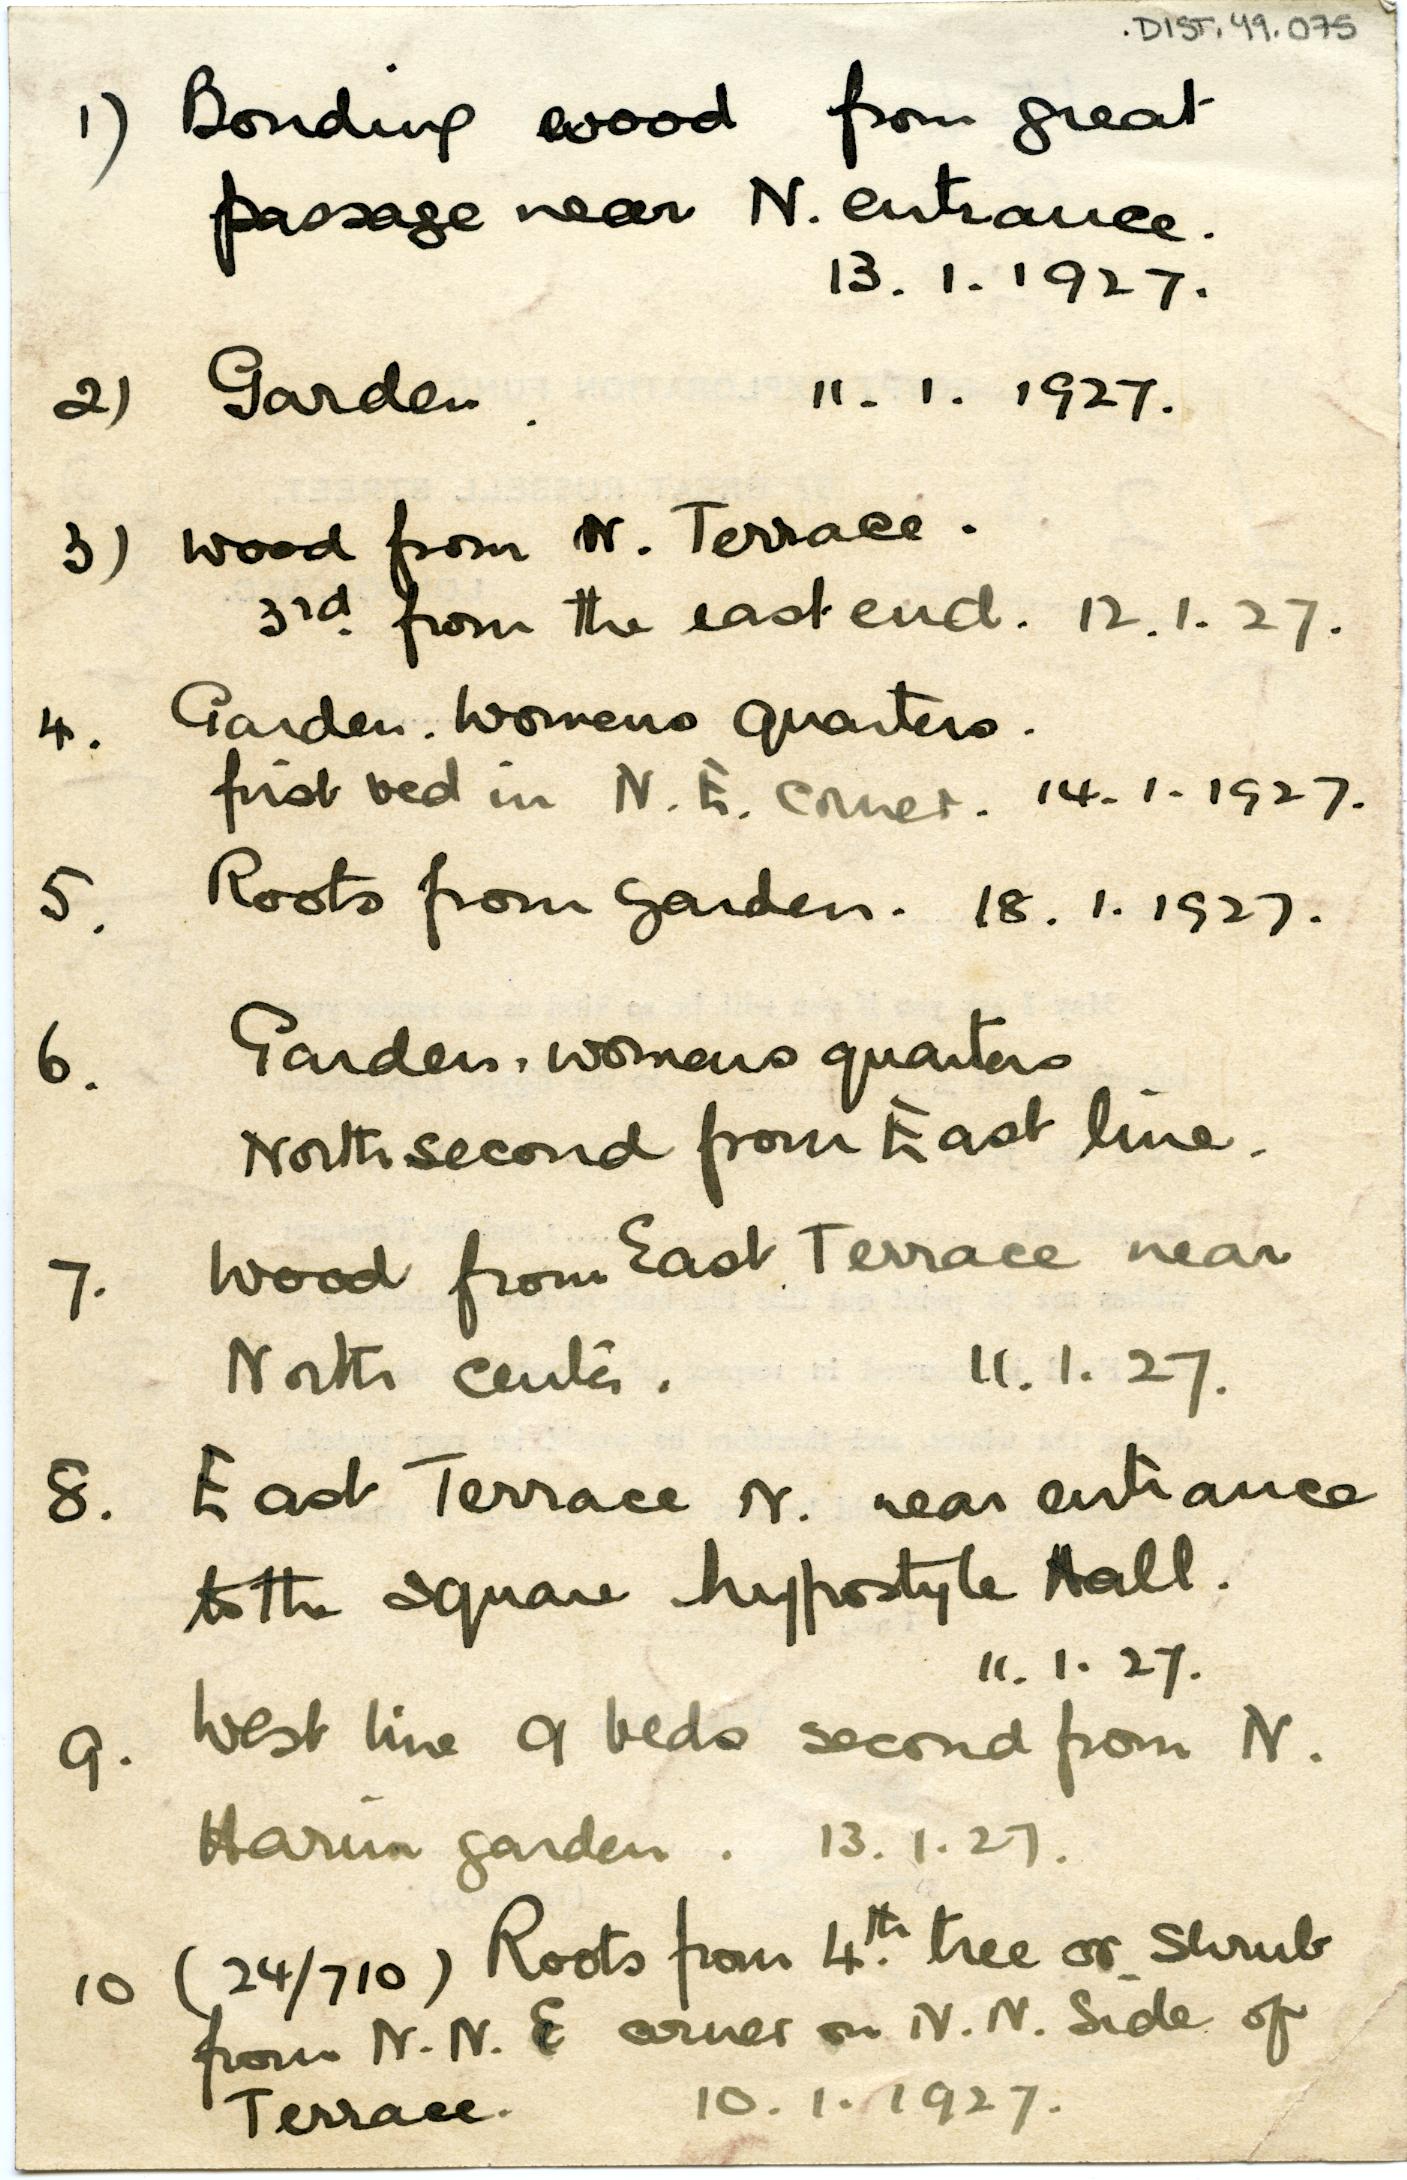 .DIST.49.075
1) Bonding wood from great
passage near N. entrance.
13. 1. 1927.
2) Garden. 11. 1. 1927.
3) Wood from N. Terrace.
3rd. from the east end. 12.1.27.
4. Garden. Womens quarters.
first bed in N. E. corner. 14. 1. 1927.
5. Roots from garden. 18. 1. 1927.
6. Garden. womens quarters
North second from East line.
7. Wood from East Terrace near
North center. 11. 1. 27.
8. East Terrace N. near entrance
to the square hypostyle Hall.
11. 1. 27.
9. West line of beds second from N.
Harim garden. 13. 1. 27.
10 (24/710) Roots from 4th. tree or shrub
from N.N. E corner on N.N. Side of
Terrace. 10. 1. 1927.